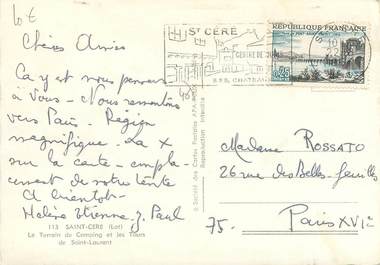 Lot
ST CÉRÉ
CENTRE DE
SES CHATEAUX
REPUBLIQUE FRANÇAISE
0,25
Chères Amies
Ca y est nous pensons
à Vous - Nous remontons
vers Paris. Région
magnifique. La X
sur la carte - empla-
cement de notre tente
A bientôt -
Helene Etienne. J. Paul
113 SAINT-CERE (Lot)
Le Terrain de Camping et les Tours
de Saint-Laurent
Société des Cartes Postales APA
Reproduction interdite
Madame ROSSATO
26 rue des Belles-Feuilles
75. Paris XVIe